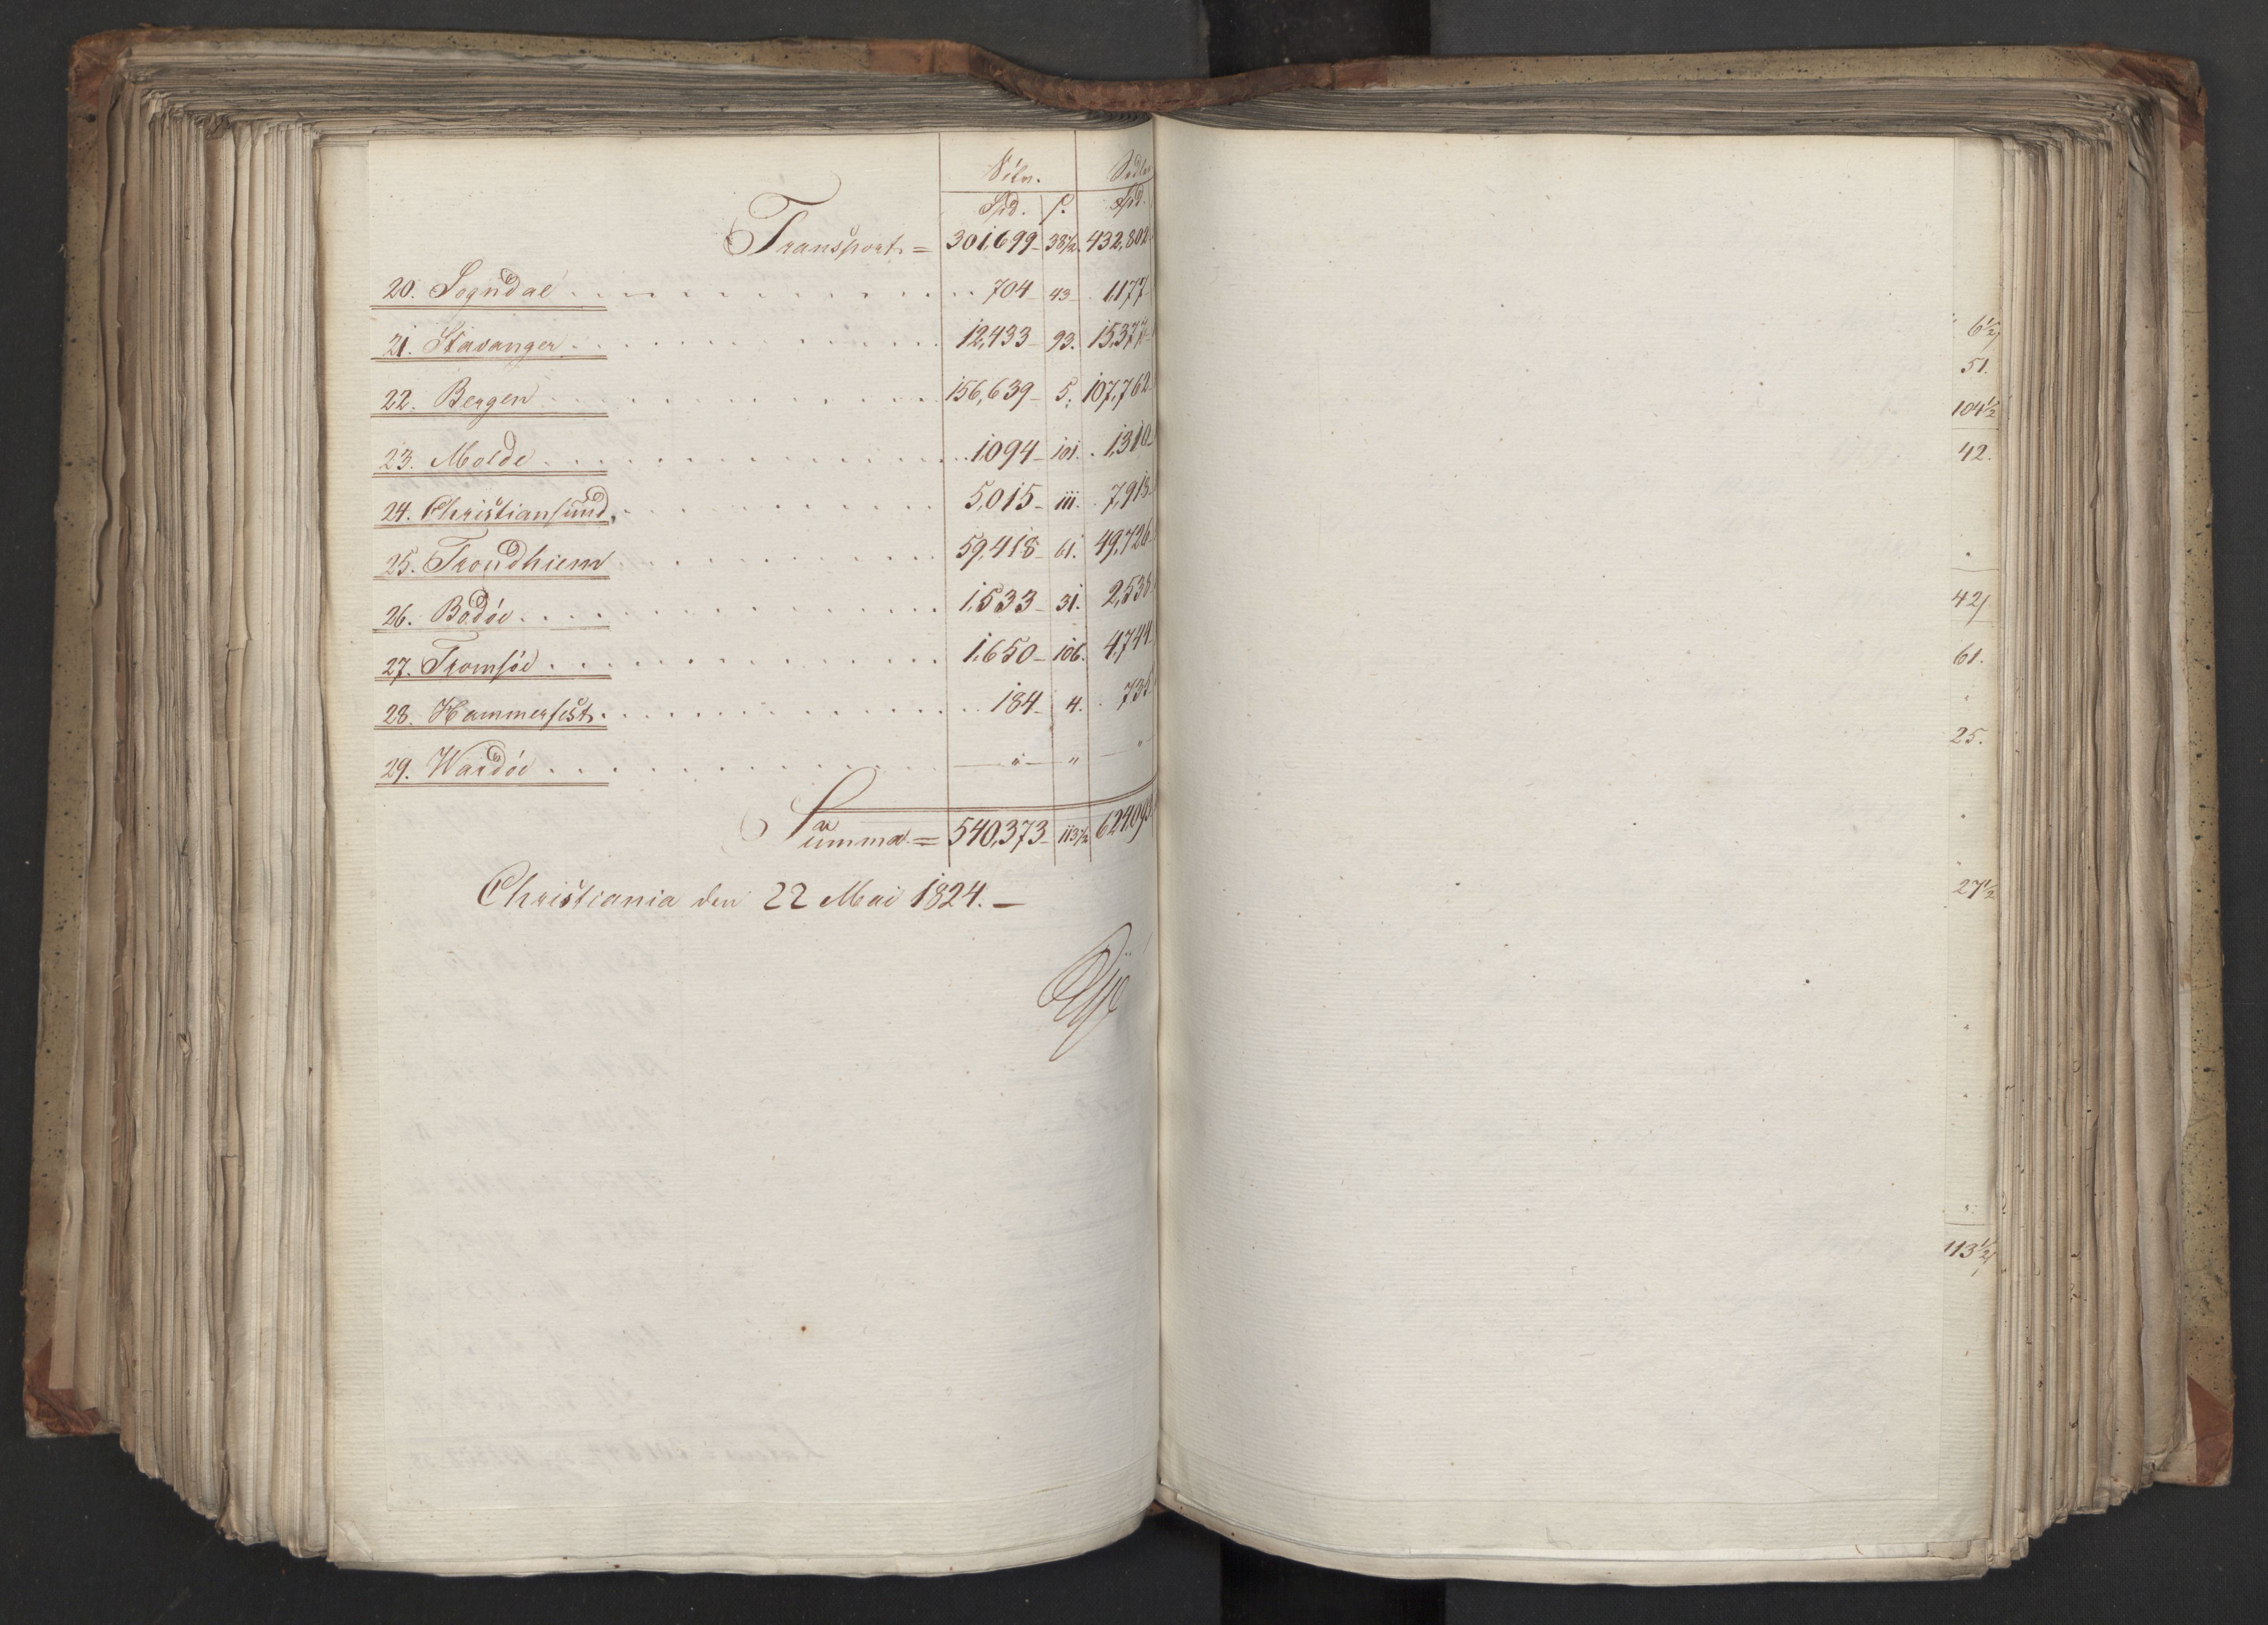 Sölv. Sedler
Spd. ſ. Spd.
Transport = 301,699 38½ 432,802
20. Sogndal 704 43 1177
21. Stavanger 12,433 93. 15,377
22. Bergen 156,639 5. 107,762
23. Molde 1,094 101. 1,310
24. Christiansund 5,015 111. 7,915
25. Trondhiem 59,418 61. 49,726
26. Bodöe 1,533 31. 2,535
27. Tromsöe 1,650 106. 4,744
28. Hammerfest 184 4. 735
29. Wardöe " " "
Summa = 540,373 113½ 624,093
Christiania den 22 Mai 1824.
6½
51.
104½
42.
42
61.
25.
27½
113½